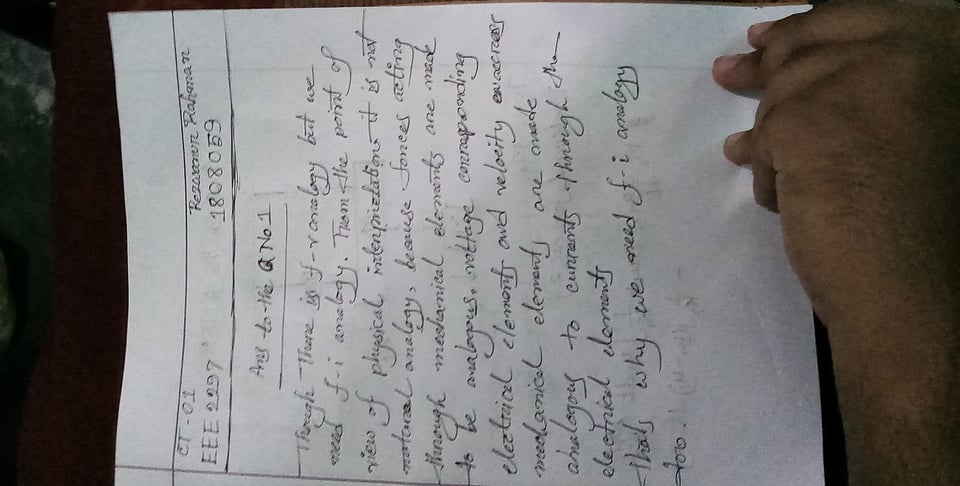 CT-01
EEE 2297
Rezwanur Rahman
1808059
Ans to the Q No 1
Though There is f-v analogy but we
need f-i analogy. From the point of
view of physical interpretation it is not
natural analogy, because forces acting
through mechanical elements are made
to be analogous. voltage corresponding
electrical elements and velocity across
mechanical elements are made
analogous to currents through the
electrical elements
thats why we need f-i analogy
too.